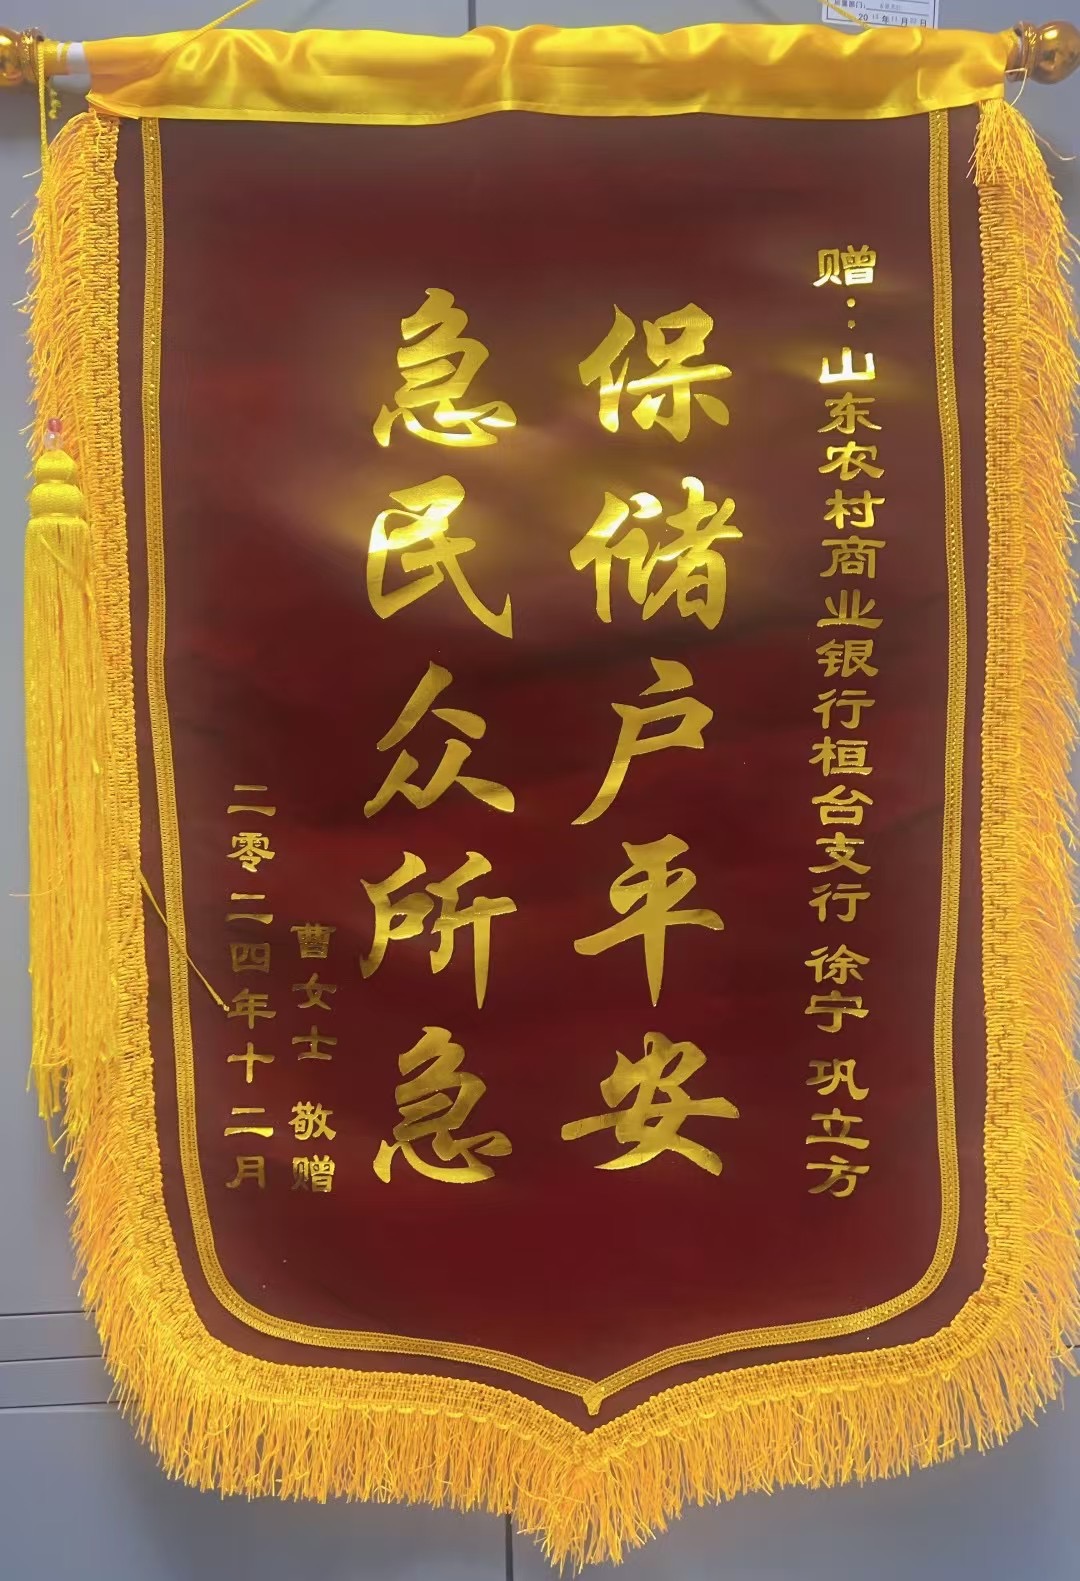 赠：山东农村商业银行桓台支行 徐宁 巩立方
保储户平安
急民众所急
曹女士 敬赠
二零二四年十二月